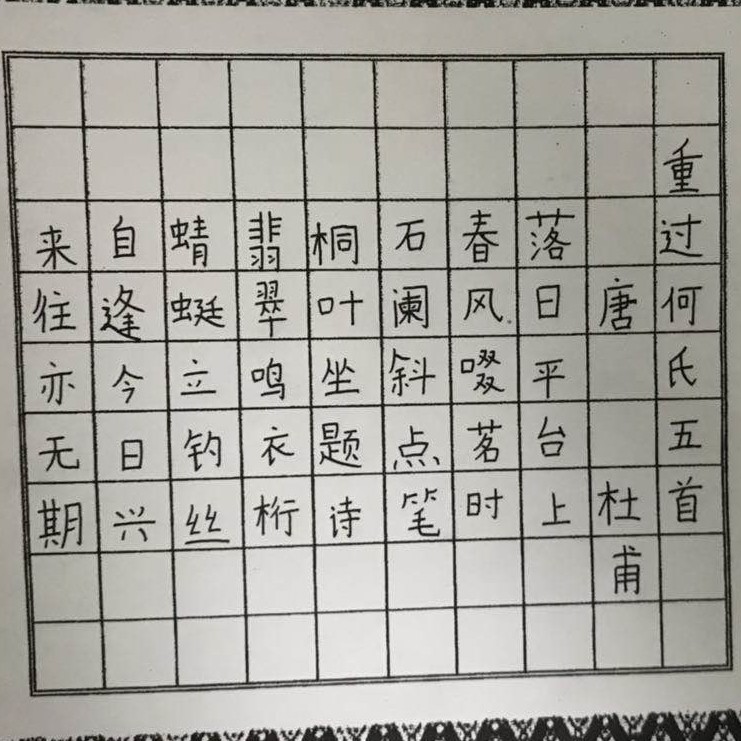 重过何氏五首
唐 杜甫
落日平台上
春风啜茗时
石阑斜点笔
桐叶坐题诗
翡翠鸣衣桁
蜻蜓立钓丝
自逢今日兴
来往亦无期